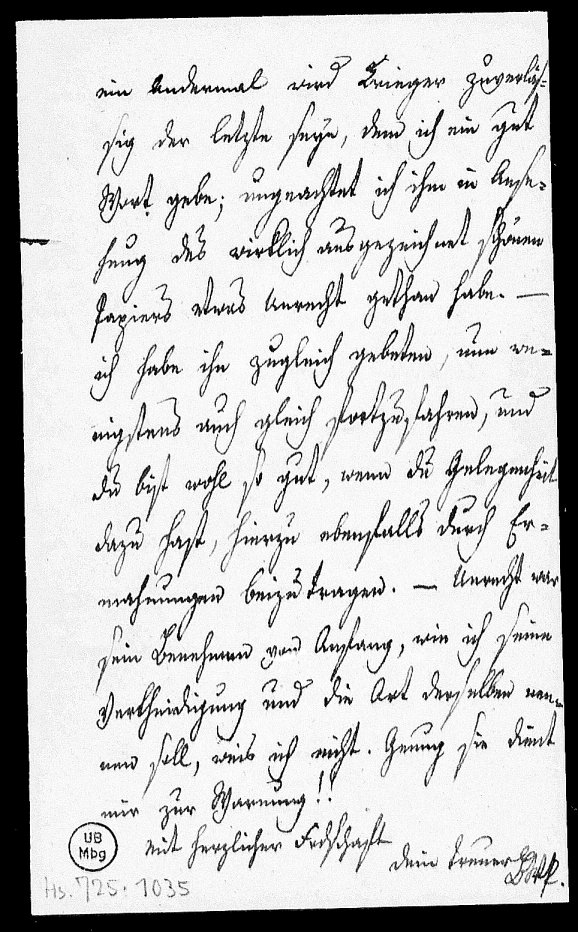 ein Andermal wird Krieger zuverläs-
sig der letzte seyn, dem ich ein gut
Wort gebe; ungeachtet ich ihm in Anse-
hung des wirklich ausgezeichnet schönen
Papiers etwas Unrecht gethan habe. —
ich habe ihn zugleich gebeten, nun we-
nigstens auch gleich fortzufahren, und
du bist wohl so gut, wenn du Gelegenheit
dazu hast, hierzu ebenfalls durch Er-
mahnungen beizutragen. — Unrecht war
sein Benehmen von Anfang, wie ich seine
Vertheidigung und die Art derselben nen-
nen soll, weis ich nicht. Genung sie dient
mir zur Warnung!!
mit herzlicher Frdschaft
dein treuer
UB
Mbg
Hs. 725:1035